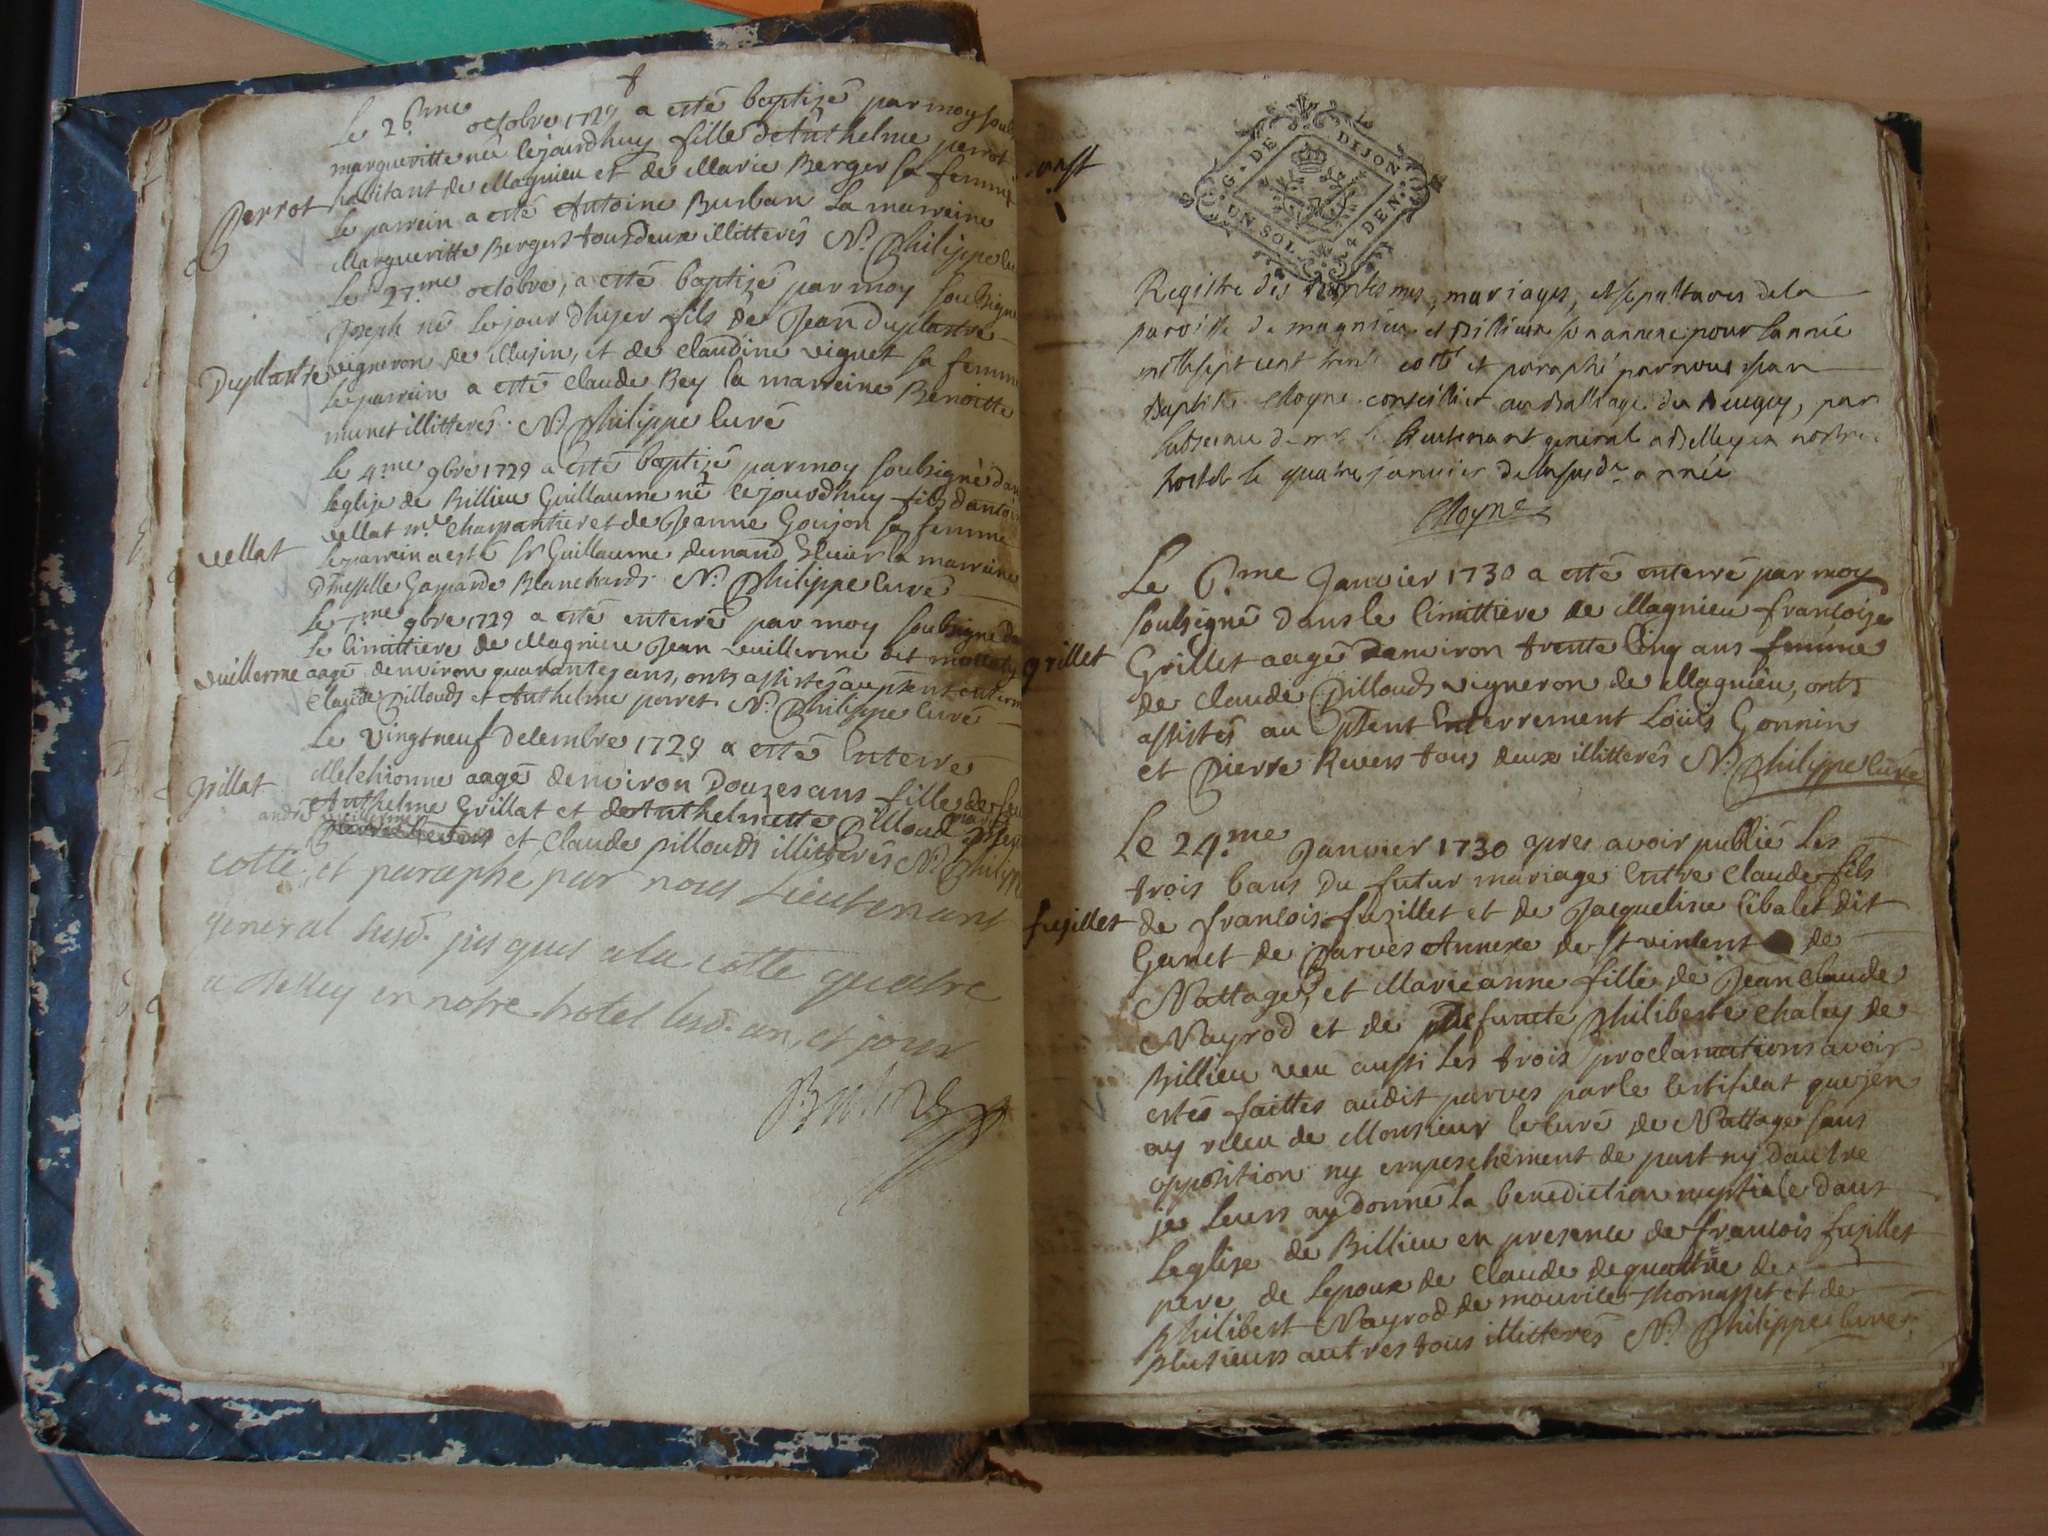 Le 26.me octobre 1729 a esté baptizé par moy soub
margueritte née cejourdhuy fille danthelme perrot
Perrot habitant de Magnieu et de Marie Berger sa femme
Le parrein a esté Antoine Burban La marreine
Margueritte Berger tous deux illitterés N. Philippe cu
Le 27.me octobre, a esté baptizé par moy soubsigné
Joseph né Le jour dhyer fils de Jean Duplastre
Duplastre vigneron de Musin, et de Claudine viguet sa femme
Le parrein a esté Claude Bey la marreine Benoitte
munet illitteres. N. Philippe Curé
Le 4.me 9bre 1729 a esté baptizé par moy soubsigné dan
Leglise de Billieu Guillaume né cejourdhuy fils dantoi
vellat vellat m.e Charpantier et de Jeanne Goujon sa femme
Le parrein a esté Sr Guillaume dunand la marreine
Gasparde Blanchard. N. Philippe Curé
Le 7me 9bre 1729 a esté enterré par moy soubsigné da
Le Cimittiere de Magnieu Jean vuillerme dit
vuillerme aagé denviron quarantes ans, onts assistés au pnt enterre
Claude Pillouds et Anthelme perret. N. Philippe Curé
Le vingtneuf Decembre 1729 a esté Enterré
Melchionne aagé denviron Douzes ans fille de feu
Grillat Anthelme Grillat et de Anthelmette Pilloud
andré vuillerme
et Claude pillouds illitterés N. Philippe
cotté, et paraphé par nous Lieutenant
general susd. jusques a la cotte quatre
a Belley en notre hotel lesd. an, et jour
G. DE DIJON
UN SOL 4 DEN.
Registre des Baptesmes, mariages, et sepultures de la
paroisse de magnieu et Billieux son annexe pour Lannée
mil sept cent trente cotté et paraphé par nous Jean
Baptiste Moyne conseillier au Balliage du Beugey, par
Labsence de mr le Lieutenant general a Belley en nostre
hostel le quatre janvier de la susd. année
Moyne
Le 6.me Janvier 1730 a esté enterré par moy
soubsigné dans le Cimittiere de Magnieu francoise
Grillet Grillet aagé denviron trente Cinq ans femme
de Claude Pillouds vigneron de Magnieu, onts
assistés au pnt Enterrement Loüis Gonnin
et Pierre Revers tous deux illitterés N. Philippe Curé
Le 24.me Janvier 1730 apres avoir publié Les
trois bans du futur mariage Entre Claude fils
fusillet de francois fusillet et de Jacqueline Cibalet dit
Ganet de Parves Annexe de St vincent de
Nattages, et Marieanne fille de Jean Claude
Nayrod et de Defuncte Philiberte Chaley de
Billieu veu aussi Les trois proclamations avoir
estés faittes audit parves par le Certificat que jen
ay receu de Monsieur le Curé de Nattage sans
opposition ny empeschement de part ny dautre
je Leurs ay donné la benediction nuptiale dans
Leglise de Billieu en presence de francois fusillet
pere de Lepoux de Claude dequattre de
Philibert Nayrod de mourice Thomasset et de
plusieurs autres tous illitterés N. Philippe Curé